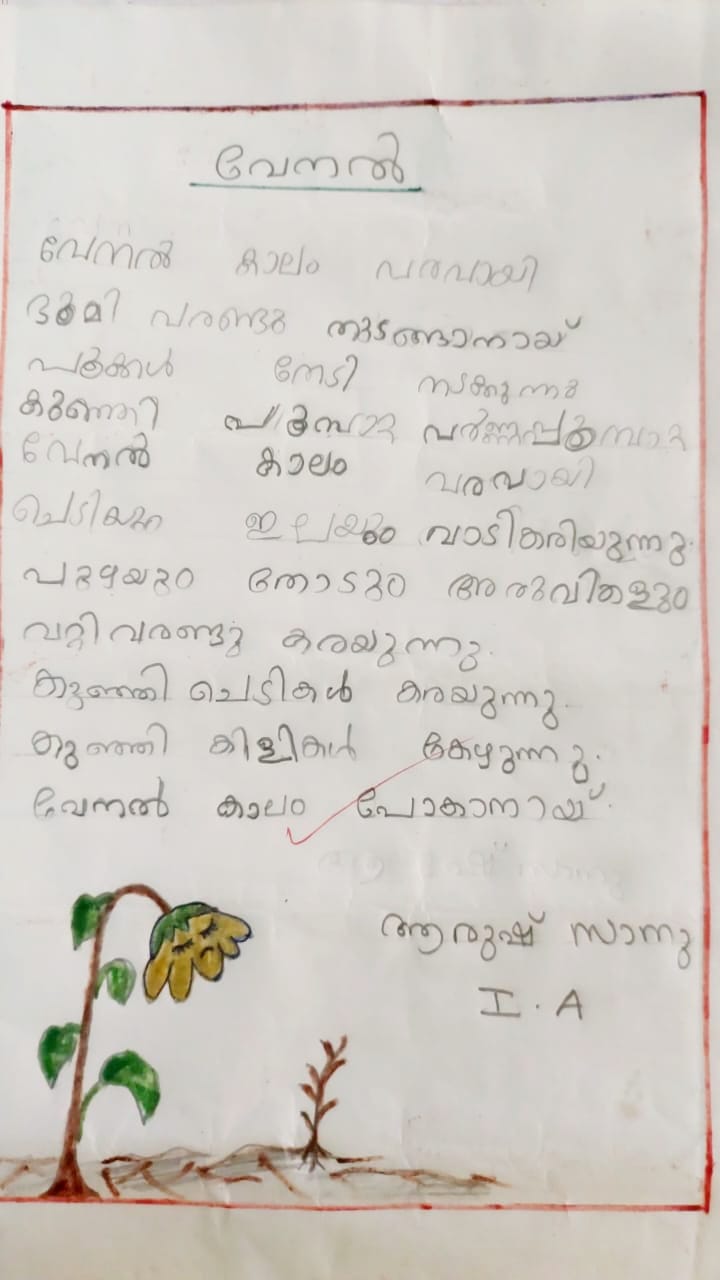 വേനൽ
വേനൽ കാലം വരവായി
ഭൂമി വരണ്ടു തുടങ്ങാനായ്
പൂക്കൾ തേടി നടക്കുന്നു
കുഞ്ഞി പൂമ്പാറ്റ വർണ്ണപ്പൂമ്പാറ്റ
വേനൽ കാലം വരവായി
ചെടിയും ഇലയും വാടികരിയുന്നു.
പുഴയും തോടും അരുവികളും
വറ്റിവരണ്ടു കരയുന്നു.
കുഞ്ഞി ചെടികൾ കരയുന്നു.
കുഞ്ഞി കിളികൾ കേഴുന്നു.
വേനൽ കാലം പോകാനായ്.
ആരുഷ് സാനു
I. A